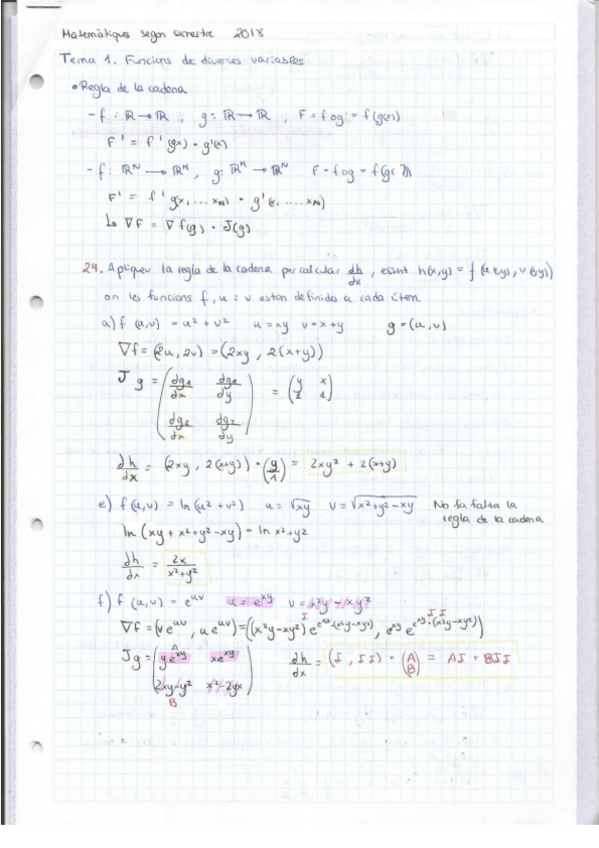 Matemàtiques segon semestre 2018
Tema 1. Funcions de diverses variables
• Regla de la cadena
- f : ℝ → ℝ , g : ℝ → ℝ , F = f o g = f(g(x))
F' = f'(g(x)) · g'(x)
- f : ℝᴺ → ℝᴹ , g : ℝᴷ → ℝᴺ F = f o g = f(g(
F' = f' g(x, ... xₙ) · g'(x, ... xₙ)
↳ ∇F = ∇f(g) · J(g)
24. Apliqueu la regla de la cadena per calcular dh/dx , essent h(x,y) = f(u(x,y), v(x,y))
on les funcions f, u i v estan definides a cada ítem
a) f (u,v) = u² + v² u = xy v = x+y g = (u,v)
∇f = (2u, 2v) = (2xy , 2(x+y))
J g = ( dg₁/dx dg₁/dy ; dg₂/dx dg₂/dy ) = ( y x ; 1 1 )
dh/dx = (2xy, 2(x+y)) · ( y/1 ) = 2xy² + 2(x+y)
e) f(u,v) = ln(u² + v²) u = √xy v = √x²+y²-xy No fa falta la
regla de la cadena
ln (xy + x²+y²-xy) = ln x²+y²
dh/dx = 2x/x²+y²
f) f (u,v) = e^uv u = e^xy v = x²y - xy²
∇f = (v e^uv, u e^uv) = ((x²y-xy²) e^(e^xy·(x²y-xy²)) , e^xy e^(e^xy·(x²y-xy²)))
I I I
Jg = ( y e^xy x e^xy ; 2xy-y² x²-2yx ) dh/dx = (I , II) · (A B) = AI + BII
A
B